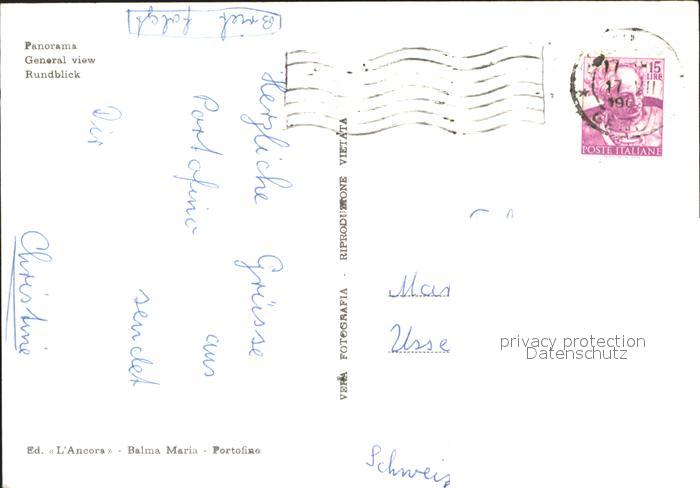 Brief folgt
Panorama
General view
Rundblick
Herzliche Grüsse
aus Portofino
sendet
Dir
Christine
VERA FOTOGRAFIA - RIPRODUZIONE VIETATA
Ed. «L'Ancora» - Balma Maria - Portofino
15
LIRE
POSTE ITALIANE
17
17
Mar
Usse
Schweiz
privacy protection
Datenschutz